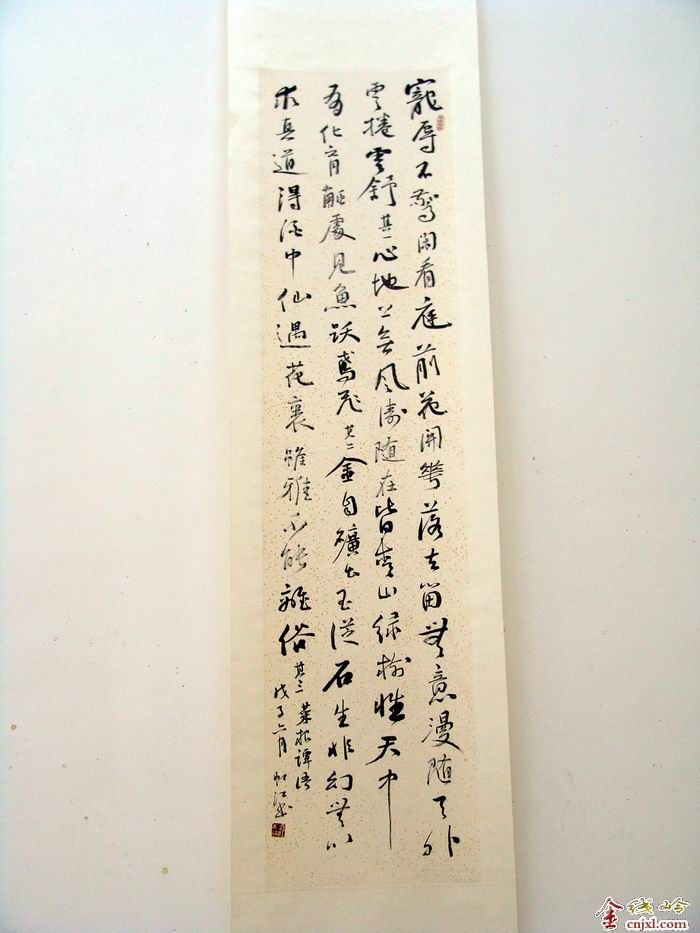 寵辱不驚閑看庭前花開華落去留無意漫随天外
雲捲雲舒其一心地上無風濤随在皆青山緑樹性天中
有化育觸處見魚跃鳶飛其二金自礦出玉從石生非幻無以
求真道得酒中仙遇花裏雖雅不能離俗其三菜根譚語
戊子六月
金线岭
cnjxl.com